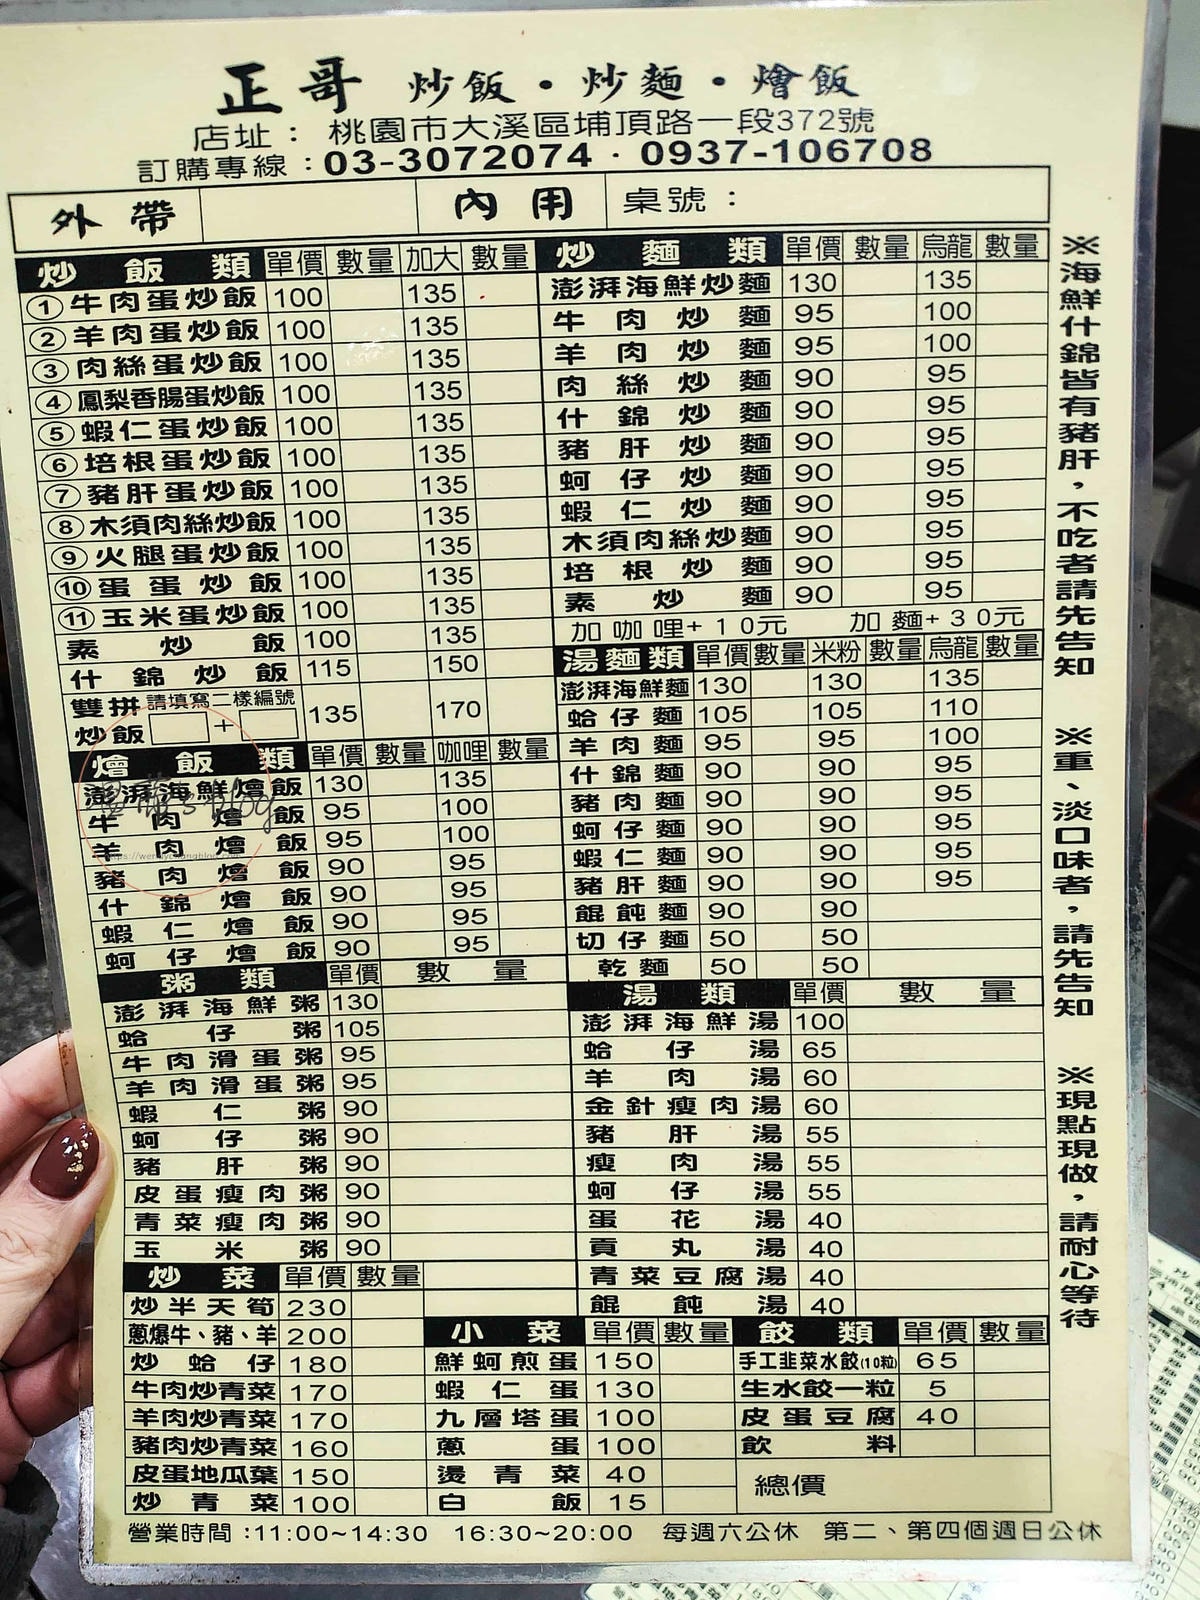 正哥 炒飯・炒麵・燴飯
店址：桃園市大溪區埔頂路一段372號
訂購專線：03-3072074・0937-106708
外帶 內用 桌號：
炒飯類 單價 數量 加大 數量
①牛肉蛋炒飯 100 135
②羊肉蛋炒飯 100 135
③肉絲蛋炒飯 100 135
④鳳梨香腸蛋炒飯 100 135
⑤蝦仁蛋炒飯 100 135
⑥培根蛋炒飯 100 135
⑦豬肝蛋炒飯 100 135
⑧木須肉絲炒飯 100 135
⑨火腿蛋炒飯 100 135
⑩蛋蛋炒飯 100 135
⑪玉米蛋炒飯 100 135
素炒飯 100 135
什錦炒飯 115 150
雙拼炒飯 請填寫二樣編號 + 135 170
燴飯類 單價 數量 咖哩 數量
澎湃海鮮燴飯 130 135
牛肉燴飯 95 100
羊肉燴飯 95 100
豬肉燴飯 90 95
什錦燴飯 90 95
蝦仁燴飯 90 95
蚵仔燴飯 90 95
粥類 單價 數量
澎湃海鮮粥 130
蛤仔粥 105
牛肉滑蛋粥 95
羊肉滑蛋粥 95
蝦仁粥 90
蚵仔粥 90
豬肝粥 90
皮蛋瘦肉粥 90
青菜瘦肉粥 90
玉米粥 90
炒菜 單價 數量
炒半天筍 230
蔥爆牛、豬、羊 200
炒蛤仔 180
牛肉炒青菜 170
羊肉炒青菜 170
豬肉炒青菜 160
皮蛋地瓜葉 150
炒青菜 100
炒麵類 單價 數量 烏龍 數量
澎湃海鮮炒麵 130 135
牛肉炒麵 95 100
羊肉炒麵 95 100
肉絲炒麵 90 95
什錦炒麵 90 95
豬肝炒麵 90 95
蚵仔炒麵 90 95
蝦仁炒麵 90 95
木須肉絲炒麵 90 95
培根炒麵 90 95
素炒麵 90 95
加咖哩+10元 加麵+30元
湯麵類 單價 數量 米粉 數量 烏龍 數量
澎湃海鮮麵 130 130 135
蛤仔麵 105 105 110
羊肉麵 95 95 100
什錦麵 90 90 95
豬肉麵 90 90 95
蚵仔麵 90 90 95
蝦仁麵 90 90 95
豬肝麵 90 90 95
餛飩麵 90 90
切仔麵 50 50
乾麵 50 50
湯類 單價 數量
澎湃海鮮湯 100
蛤仔湯 65
羊肉湯 60
金針瘦肉湯 60
豬肝湯 55
瘦肉湯 55
蚵仔湯 55
蛋花湯 40
貢丸湯 40
青菜豆腐湯 40
餛飩湯 40
小菜 單價 數量
鮮蚵煎蛋 150
蝦仁蛋 130
九層塔蛋 100
蔥蛋 100
燙青菜 40
白飯 15
餃類 單價 數量
手工韭菜水餃(10粒) 65
生水餃一粒 5
皮蛋豆腐 40
飲料
總價
※海鮮什錦皆有豬肝，不吃者請先告知
※重、淡口味者，請先告知
※現點現做，請耐心等待
營業時間：11:00~14:30 16:30~20:00 每週六公休 第二、第四個週日公休